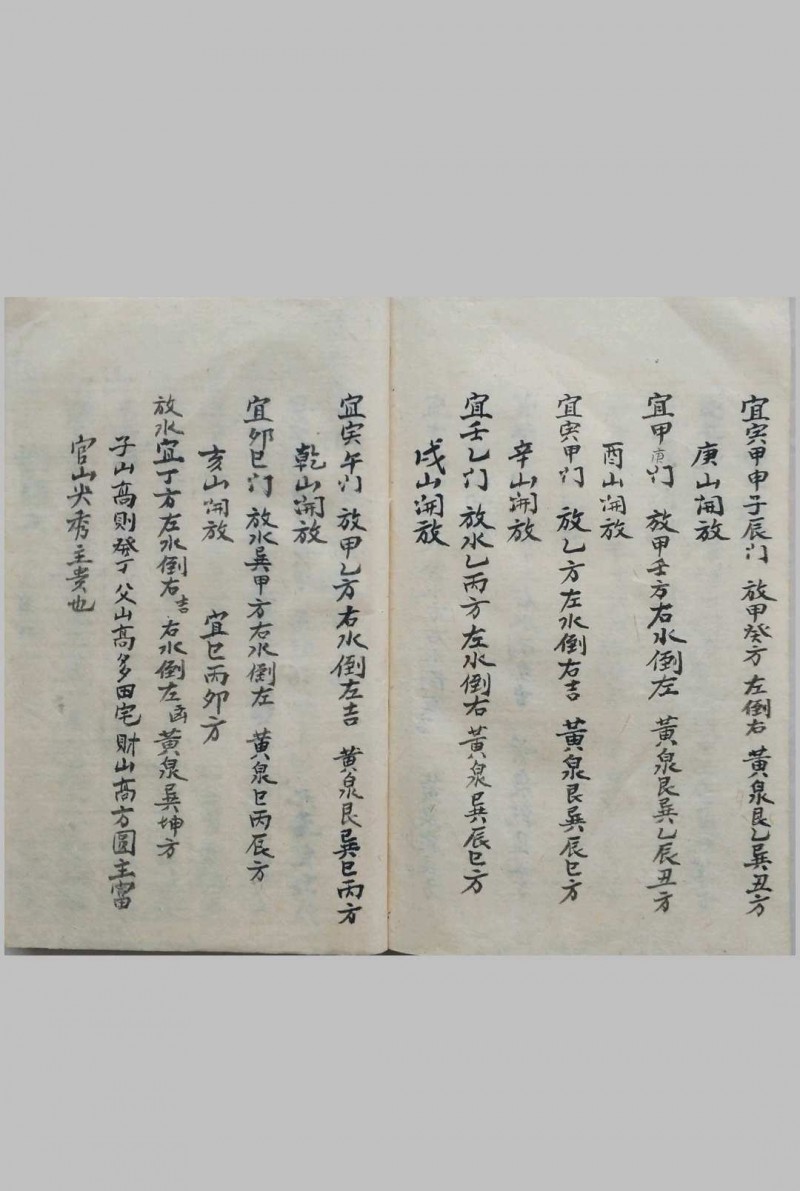 宜寅甲申子辰门 放甲癸方 左倒右 黄泉艮乙巽丑方
庚山開放
宜甲庚门 放甲壬方右水倒左 黄泉艮巽乙辰丑方
酉山開放
宜寅甲门 放乙方左水倒右吉 黄泉艮巽辰巳方
辛山開放
宜壬乙门 放水乙丙方左水倒右 黄泉巽辰巳方
戌山開放
宜寅午门 放甲乙方右水倒左吉 黄泉艮巽巳丙方
乾山開放
宜卯巳门 放水巽甲方右水倒左 黄泉巳丙辰方
亥山開放 宜巳丙卯方
放水宜丁方左水倒右吉 右水倒左凶 黄泉巽坤方
子山高則發丁 父山高多田宅 财山高方圓主富
官山尖秀主贵也